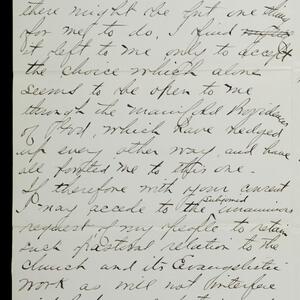 there might be but one thing
for me to do. I find
it left to me only to accept
the choice which alone
seems to be open to me
through the manifold Providences
of God, which have hedged
up every other way, and have
all pointed me to this one.
I therefore with your consent
I may accede to the unanimous
request of my people to retain
such pastoral relation to the
church and its Evangelistic
work as will not interfere